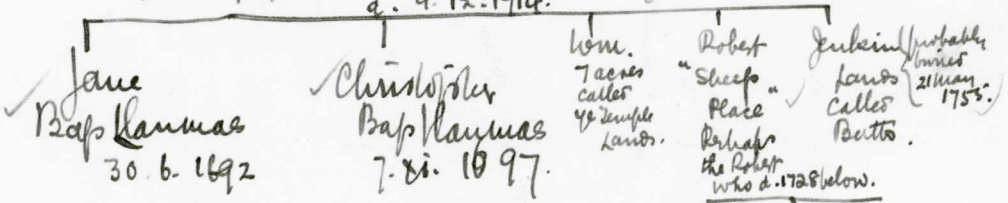 d. 9. 12. 1714.
Jane
Bap Llanmaes
30. 6. 1692
Christopher
Bap Llanmaes
7. xi. 1697.
Wm.
7 acres
called
ye Temple
Lands.
Robert
"Sheeps
Place"
Perhaps
the Robert
who d. 1728 below.
Jenkin
Lands
called
Butts.
(probably
buried
21 May
1755.)